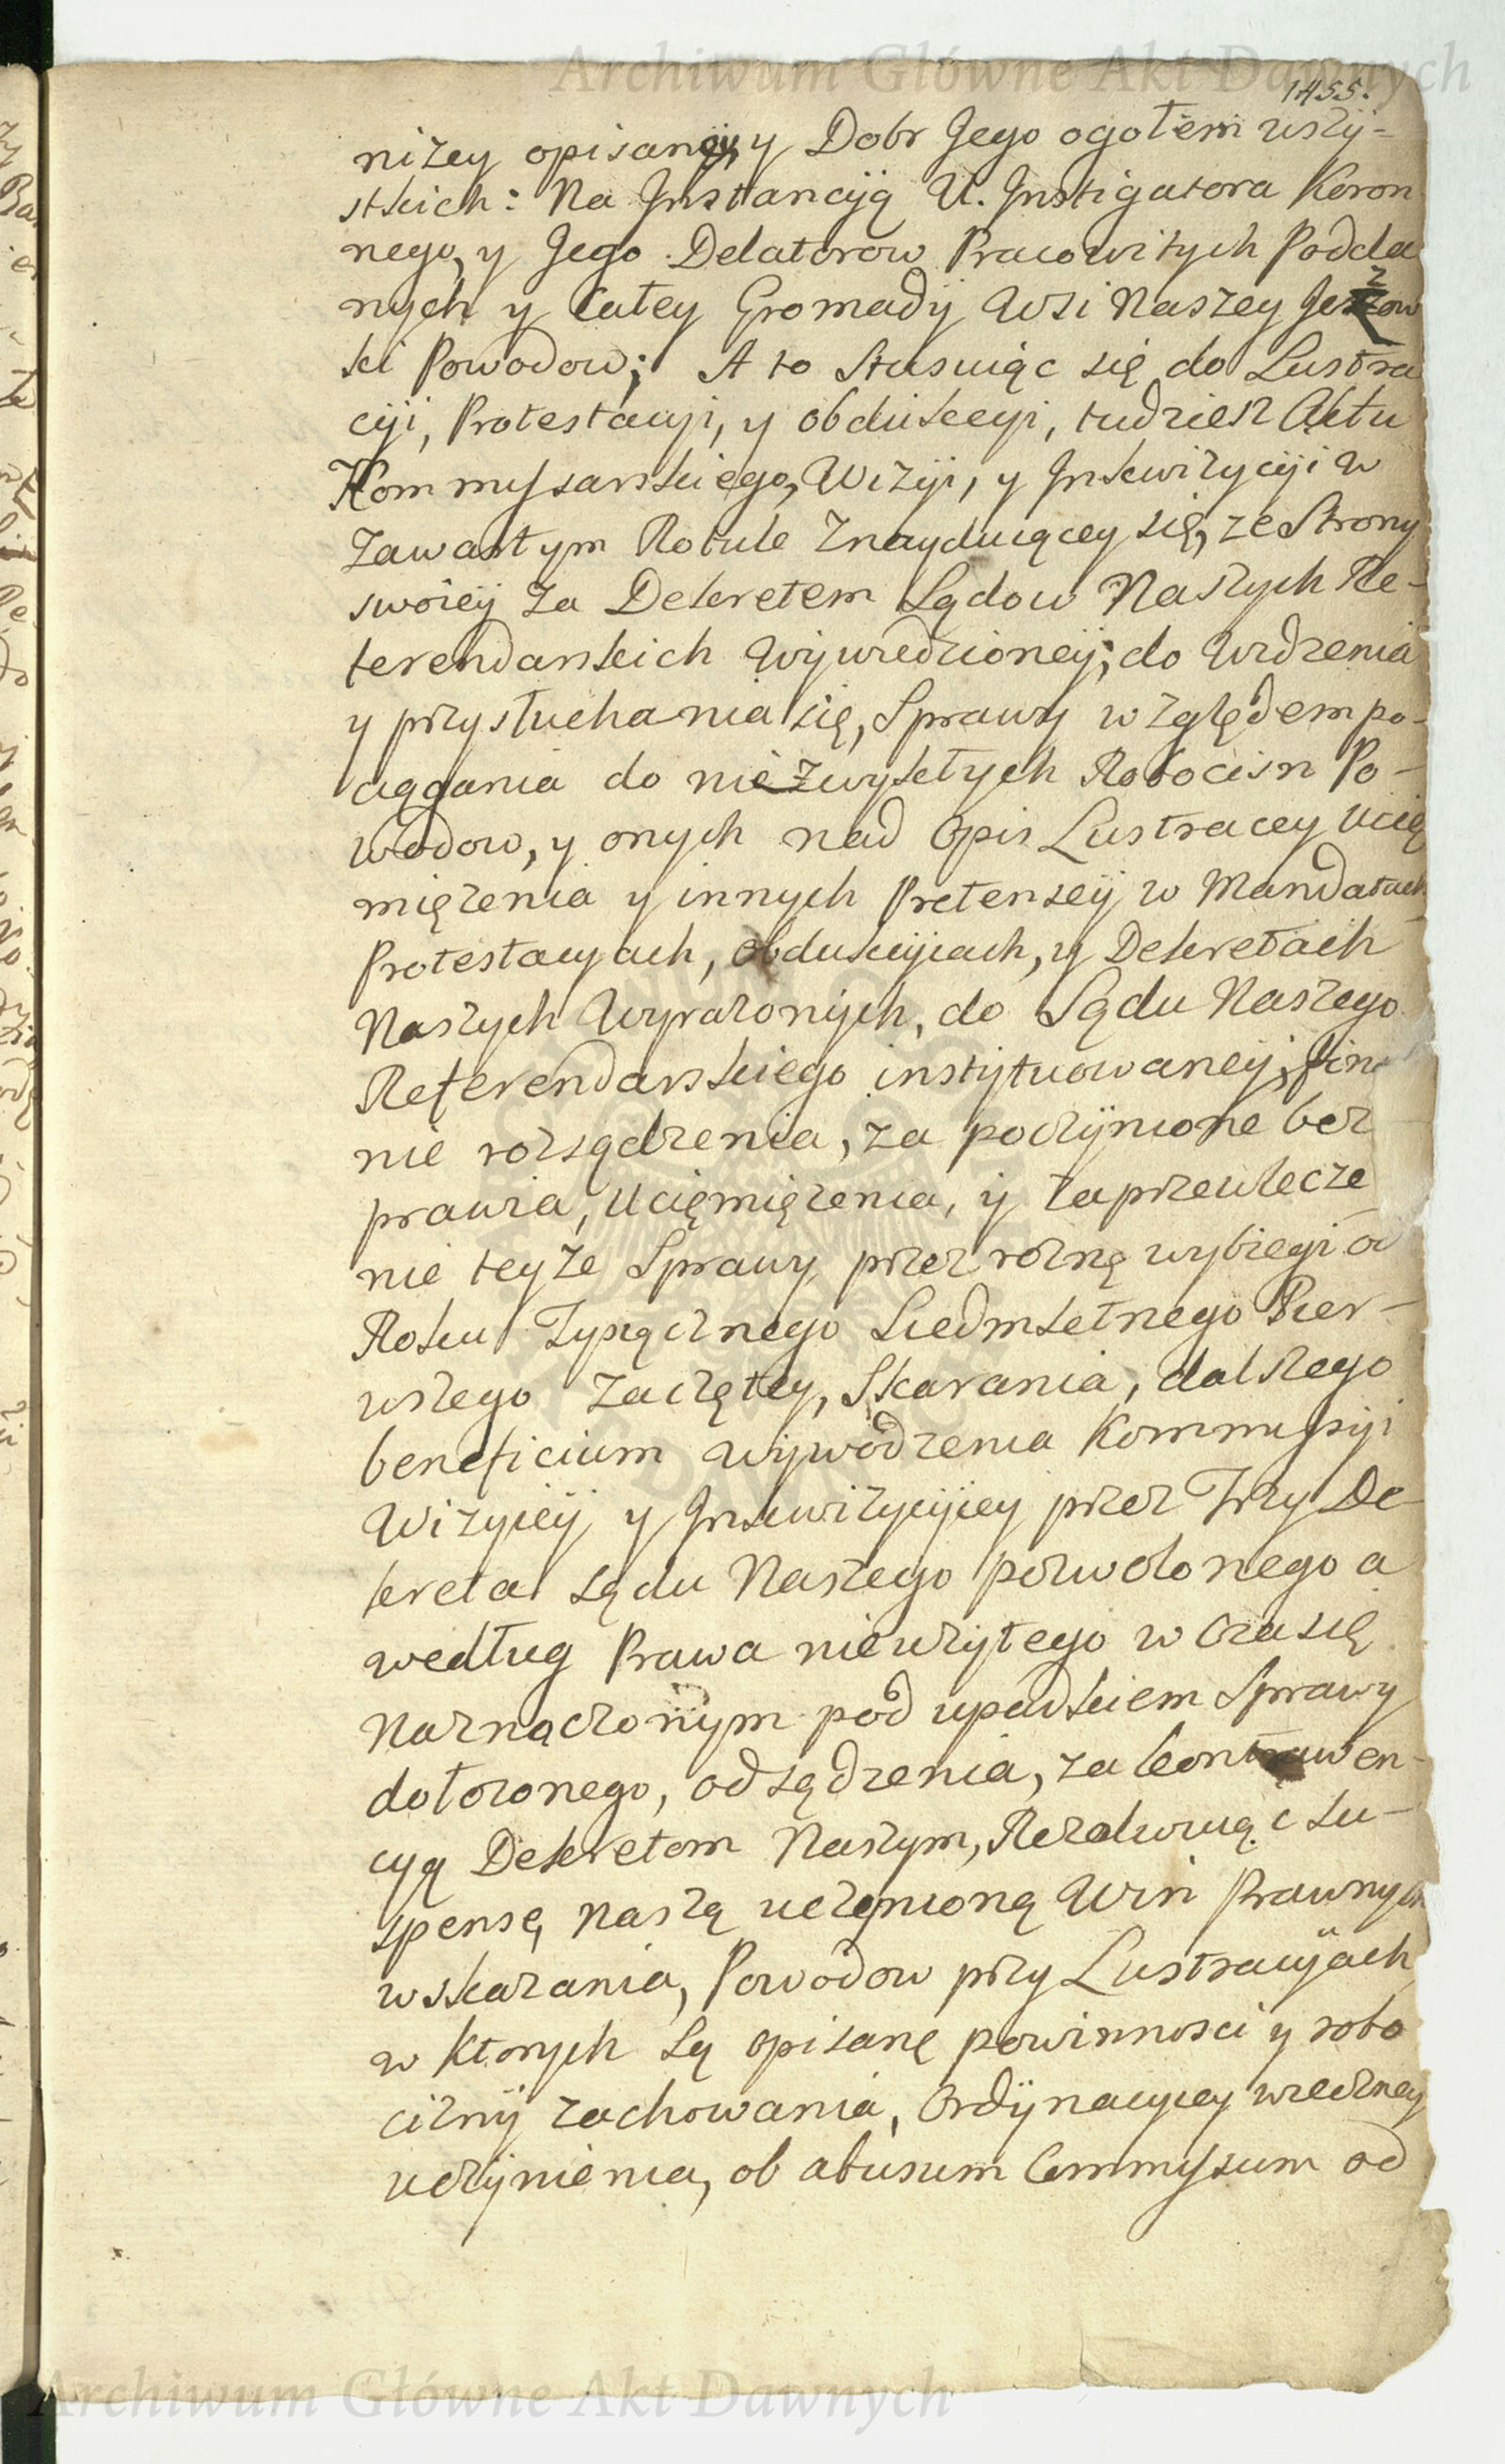 Archiwum Główne Akt Dawnych
1455.
niżey opisaney, y Dobr Jego ogołem wszy-
stkich: Na Jnstancyią U. Jnstigatora Koron
nego, y Jego Delatorow Pracowitych Podda
nych y całey Gromady Wsi Naszey Jeżow
ski Powodow; A to Stusuiąc się do Lustra
cyi, Protestacyi, y obdukcyi, tudziesz Aktu
Kommyssarskiego, Wizyi, y Jnkwizycyi w
Zawartym Rotule Znayduiącey się, ze Strony
swoiey za Dekretem Sądow Naszych Re-
ferendarskich Wywiedzioney; do Widzenia
y przysłuchania się, Sprawy względem po-
ciągania do nie zwykłych Robocizn Po-
wodow, y onych nad Opis Lustracey Ucię
miężenia y innych Pretensey w Mandatach
Protestacyach, obdukcyiach, y Dekretach
Naszych Wyrażonych, do Sądu Naszego
Referendarskiego instytuowaney;
nie rozsądzenia, za poczynione bez
prawia, Ucięmiężenia, y zaprzewlecze
nie teyże Sprawy przez rożnę wybiegi od
Roku Tysiącznego Siedmsetnego Pier-
wszego Zaczętey, Skarania, dalszego
beneficium wywodzenia Kommyssyi
Wizyiey y Jnkwizycyiey przez Trzy De-
kreta Sądu Naszego pozwolonego a
według Prawa nieużytego w Czasię
Naznaczonym pod upadkiem Sprawy
dołożonego, odsądzenia, za kontrawen-
cyą Dekretom Naszym, Rezolwuiąc Su-
spensę Naszą uczynioną Win Prawnych
wskazania, Powodow przy Lustracyach
w Ktorych Są opisanę powinnosci y robo
cizny zachowania, Ordynacyiey wieczney
uczynienia, ob abusum Commyssum od
Archiwum Główne Akt Dawnych